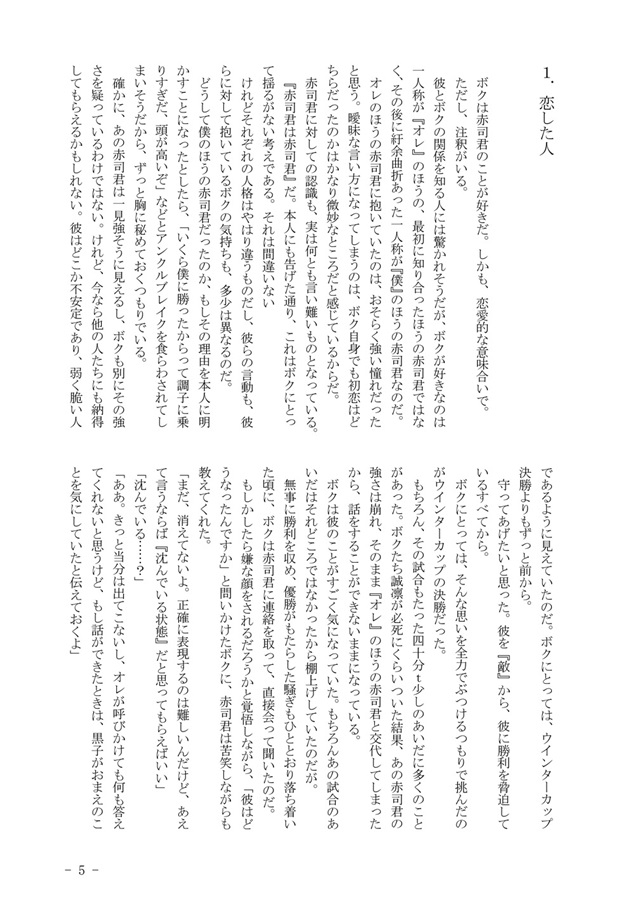 1．恋した人
ボクは赤司君のことが好きだ。しかも、恋愛的な意味合いで。
ただし、注釈がいる。
彼とボクの関係を知る人には驚かれそうだが、ボクが好きなのは
一人称が『オレ』のほうの、最初に知り合ったほうの赤司君ではな
く、その後に紆余曲折あった一人称が『僕』のほうの赤司君なのだ。
オレのほうの赤司君に抱いていたのは、おそらく強い憧れだった
と思う。曖昧な言い方になってしまうのは、ボク自身でも初恋はど
ちらだったのかはかなり微妙なところだと感じているからだ。
赤司君に対しての認識も、実は何とも言い難いものとなっている。
『赤司君は赤司君』だ。本人にも告げた通り、これはボクにとっ
て揺るがない考えである。それは間違いない
けれどそれぞれの人格はやはり違うものだし、彼らの言動も、彼
らに対して抱いているボクの気持ちも、多少は異なるのだ。
どうして僕のほうの赤司君だったのか、もしその理由を本人に明
かすことになったとしたら、「いくら僕に勝ったからって調子に乗
りすぎだ、頭が高いぞ」などとアンクルブレイクを食らわされてし
まいそうだから、ずっと胸に秘めておくつもりでいる。
確かに、あの赤司君は一見強そうに見えるし、ボクも別にその強
さを疑っているわけではない。けれど、今なら他の人たちにも納得
してもらえるかもしれない。彼はどこか不安定であり、弱く脆い人
であるように見えていたのだ。ボクにとっては、ウインターカップ
決勝よりもずっと前から。
守ってあげたいと思った。彼を『敵』から、彼に勝利を脅迫して
いるすべてから。
ボクにとっては、そんな思いを全力でぶつけるつもりで挑んだの
がウインターカップの決勝だった。
もちろん、その試合もたった四十分ｔ少しのあいだに多くのこと
があった。ボクたち誠凛が必死にくらいついた結果、あの赤司君の
強さは崩れ、そのまま『オレ』のほうの赤司君と交代してしまった
から、話をすることができないままになっている。
ボクは彼のことがすごく気になっていた。もちろんあの試合のあ
いだはそれどころではなかったから棚上げしていたのだが。
無事に勝利を収め、優勝がもたらした騒ぎもひととおり落ち着い
た頃に、ボクは赤司君に連絡を取って、直接会って聞いたのだ。
もしかしたら嫌な顔をされるだろうかと覚悟しながら、「彼はど
うなったんですか」と問いかけたボクに、赤司君は苦笑しながらも
教えてくれた。
「まだ、消えてないよ。正確に表現するのは難しいんだけど、あえ
て言うならば『沈んでいる状態』だと思ってもらえばいい」
「沈んでいる……？」
「ああ。きっと当分は出てこないし、オレが呼びかけても何も答え
てくれないと思うけど、もし話ができたときは、黒子がおまえのこ
とを気にしていたと伝えておくよ」
- 5 -